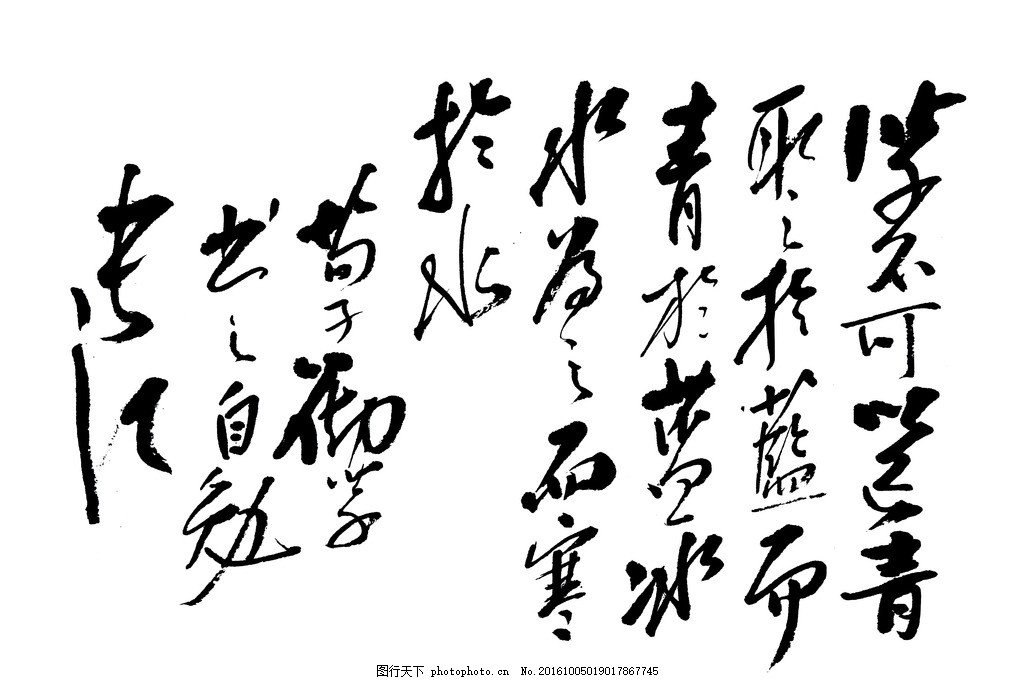 学不可以已青
取之於藍而
青於蓝冰
水为之而寒
於水
荀子勸学
书之自勉
图行天下 photophoto.cn No.20161005019017867745